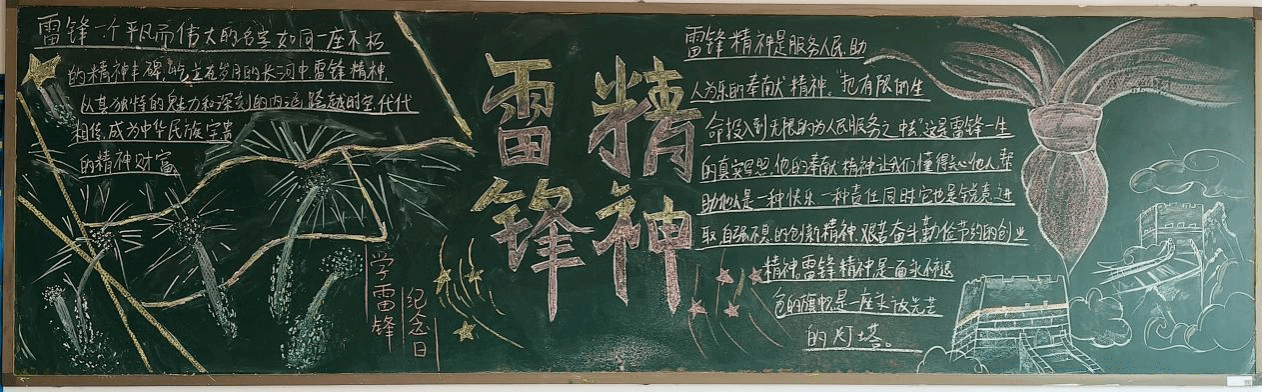 雷锋一个平凡而伟大的名字如同一座不朽
的精神丰碑,屹立在岁月的长河中雷锋精神
以其独特的魅力和深刻的内涵跨越时空代代
相传,成为中华民族宝贵
的精神财富
学雷锋
纪念日
雷锋
精神
雷锋精神是服务人民助
人为乐的奉献精神。"把有限的生
命投入到无限的为人民服务之中去"这是雷锋一生
的真实写照,他的奉献精神让我们懂得关心他人,帮
助他人是一种快乐一种责任同时它也是锐意进
取自强不息的创新精神艰苦奋斗勤俭节约的创业
精神,雷锋精神是一面永不褪
色的旗帜是一座永放光芒
的灯塔。